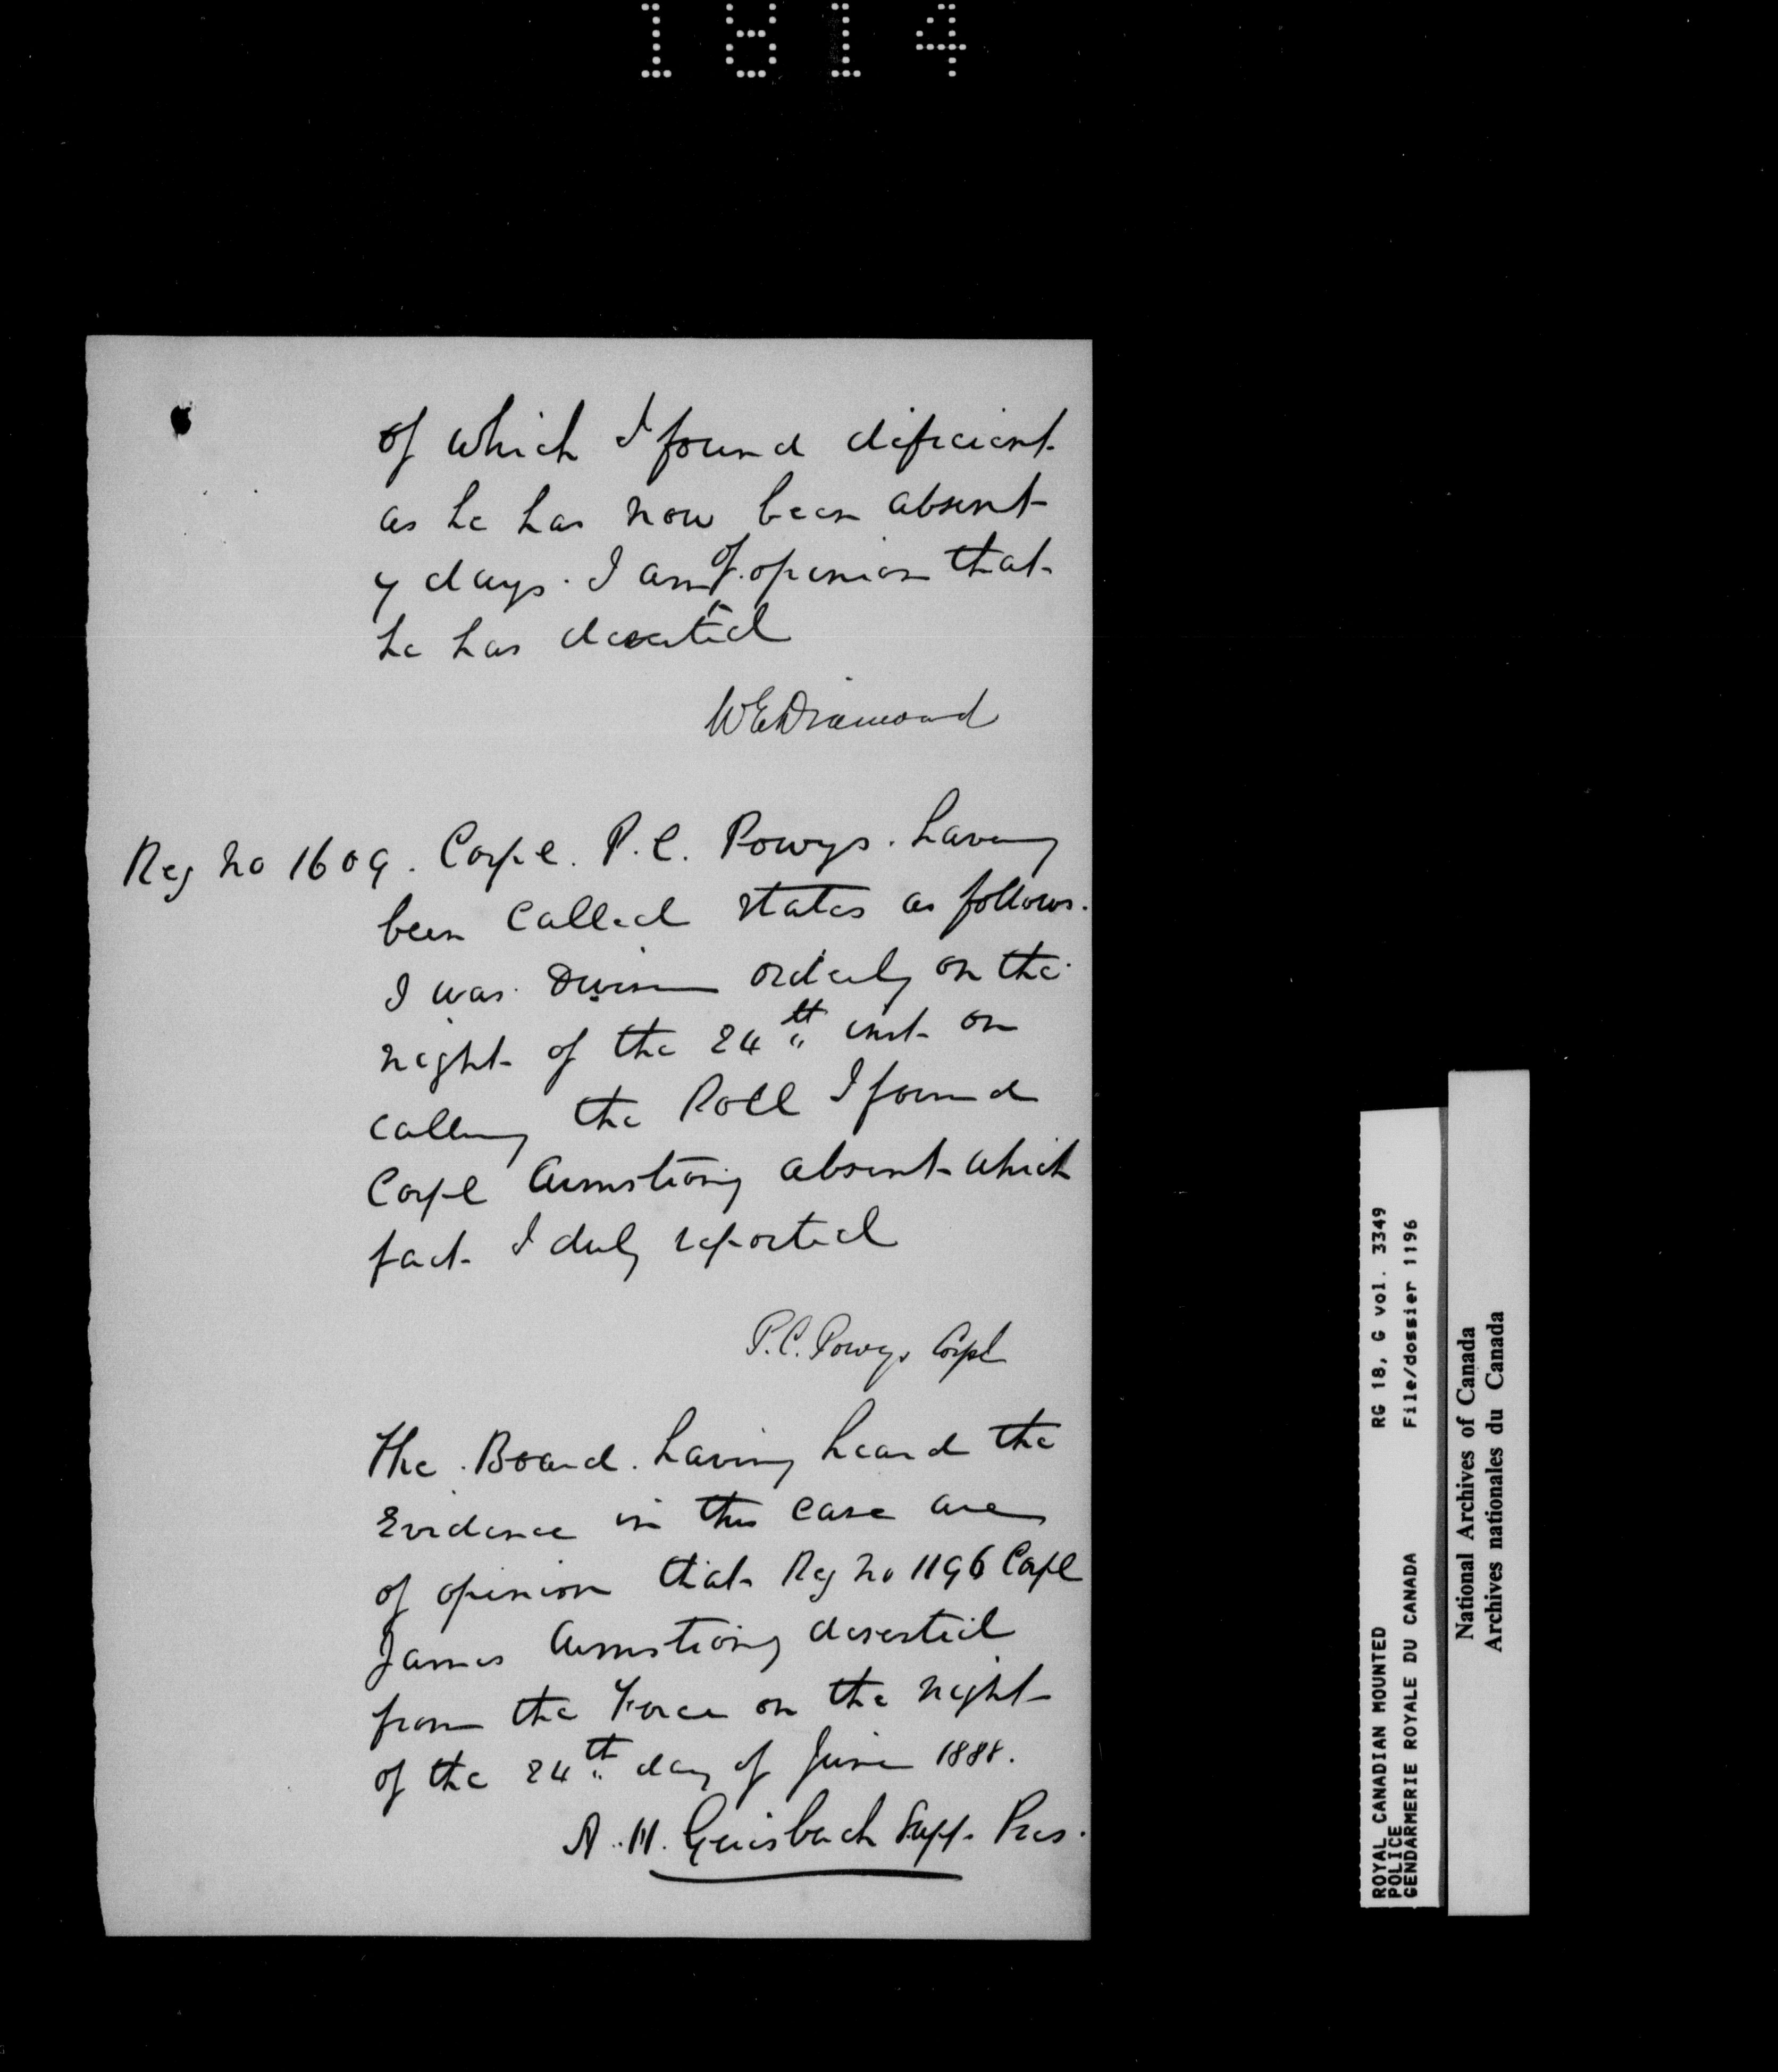 1814
of which I found dificient
as he has now been absent
7 days. I am of opinion that
he has deserted
W E Diamond
Reg No 1609. Corpl. P. C. Powys. having
been called states as follows.
I was Division orderly on the
night of the 24th inst on
calling the Roll I found
Corpl Armstrong absent which
fact I duly reported
P. C. Powys Corpl
The Board having heard the
Evidence in this case are
of opinion that Reg No 1196 Corpl
James Armstrong deserted
from the Force on the night
of the 24th day of June 1888.
A. H. Griesbach Supt. Pres.
ROYAL CANADIAN MOUNTED RG 18, G vol. 3349
POLICE
GENDARMERIE ROYALE DU CANADA File/dossier 1196
National Archives of Canada
Archives nationales du Canada